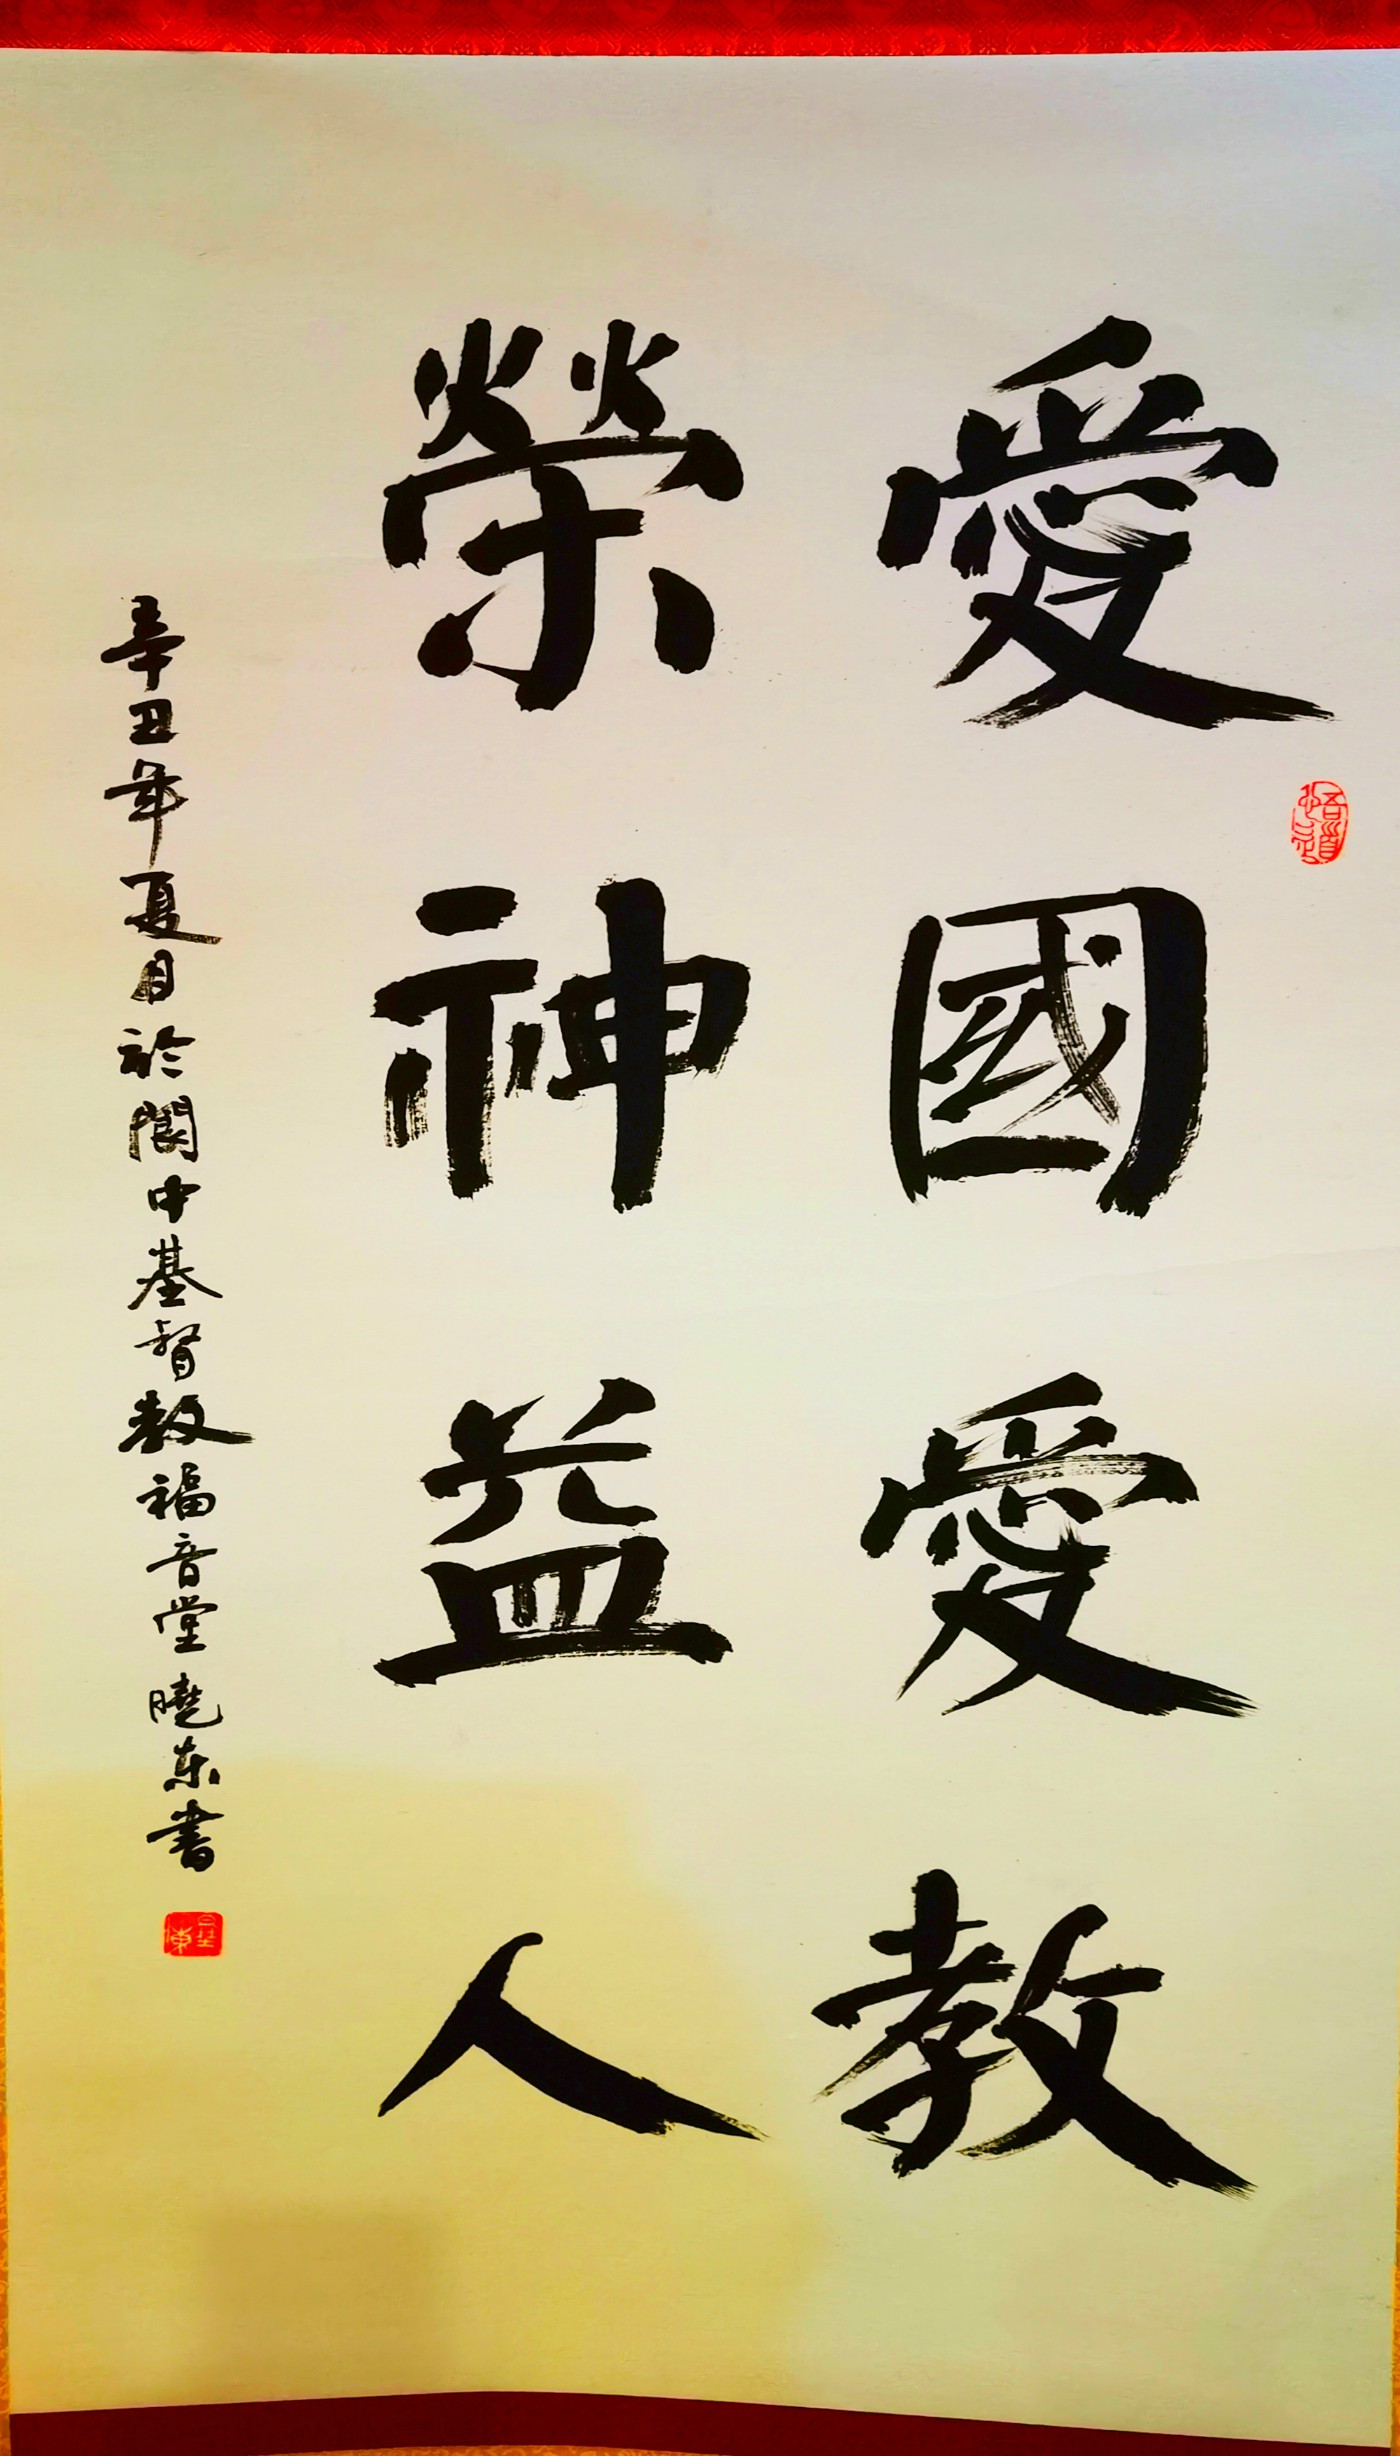 愛國愛教
榮神益人
辛丑年夏月於閬中基督教福音堂曉東書